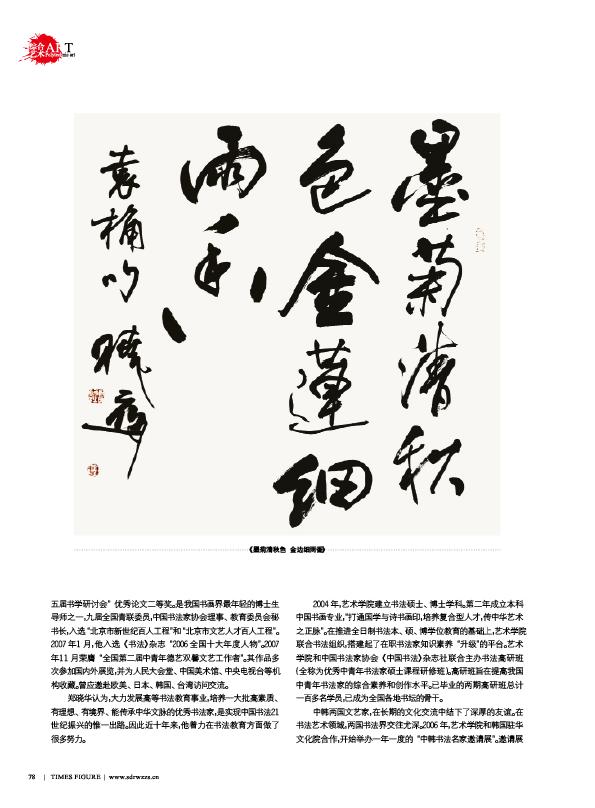 综合 ART
艺术
墨菊清秋
色金蓮細
雨香
袁桷句
五届书学研讨会”优秀论文二等奖。是我国书画界最年轻的博士生
导师之一,九届全国青联委员,中国书法家协会理事、教育委员会秘
书长,入选“北京市新世纪百人工程”和“北京市文艺人才百人工程”。
2007年1月,他入选《书法》杂志“2006全国十大年度人物”。2007
年11月荣膺“全国第二届中青年德艺双馨文艺工作者”。其作品多
次参加国内外展览,并为人民大会堂、中国美术馆、中央电视台等机
构收藏。曾应邀赴欧美、日本、韩国、台湾访问交流。
郑晓华认为,大力发展高等书法教育事业,培养一大批高素质、
有理想、有境界、能传承中华文脉的优秀书法家,是实现中国书法21
世纪振兴的惟一出路。因此近十年来,他着力在书法教育方面做了
很多努力。
2004年,艺术学院建立书法硕士、博士学科。第二年成立本科
中国书画专业,“打通国学与诗书画印,培养复合型人才,传中华艺术
之正脉”。在推进全日制书法本、硕、博学位教育的基础上,艺术学院
联合书法组织,搭建起了在职书法家知识素养“升级”的平台。艺术
学院和中国书法家协会《中国书法》杂志社联合主办书法高研班
(全称为优秀中青年书法家硕士课程研修班)。高研班旨在提高我国
中青年书法家的综合素养和创作水平。已毕业的两期高研班总计
一百多名学员,已成为全国各地书坛的骨干。
中韩两国文艺家,在长期的文化交流中结下了深厚的友谊。在
书法艺术领域,两国书法界交往尤深。2006年,艺术学院和韩国驻华
文化院合作,开始举办一年一度的“中韩书法名家邀请展”。邀请展
78 | TIMES FIGURE | www.sdrwzzs.cn